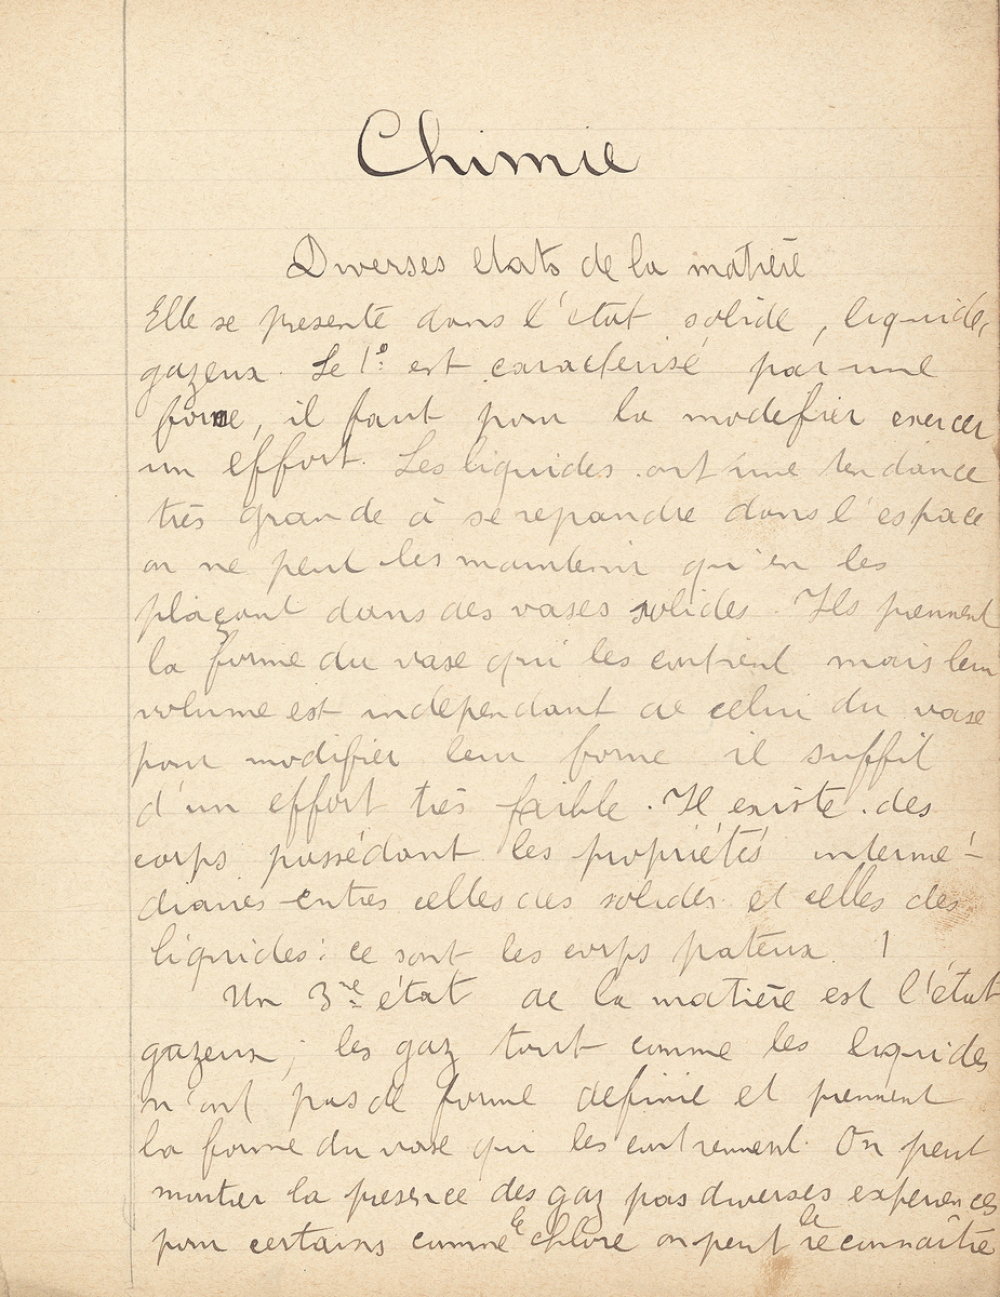 Chimie
Diverses etats de la matière
Elle se presente dans l'état solide, liquide,
gazeux. Le 1e est caracterisé par une
forme, il faut pour la modefier exercer
un effort. Les liquides ont une tendance
très grande à se repandre dans l'espace
on ne peut les maintenir qu'en les
plaçant dans des vases solides. Ils prennent
la forme du vase qui les contient mais leur
volume est independant de celui du vase
pour modifier leur forme il suffit
d'un effort très faible. Il existe des
corps possédant les propriétés intermé-
diaires entres celles des solides et celles des
liquides: ce sont les corps pateux.
Un 3me état de la matière est l'état
gazeux; les gaz tout comme les liquides
n'ont pas de forme definie et prennent
la forme du vase qui les contiennent. On peut
montrer la presence des gaz pas diverses experiences
pour certains comme le chlore on peut le reconnaître